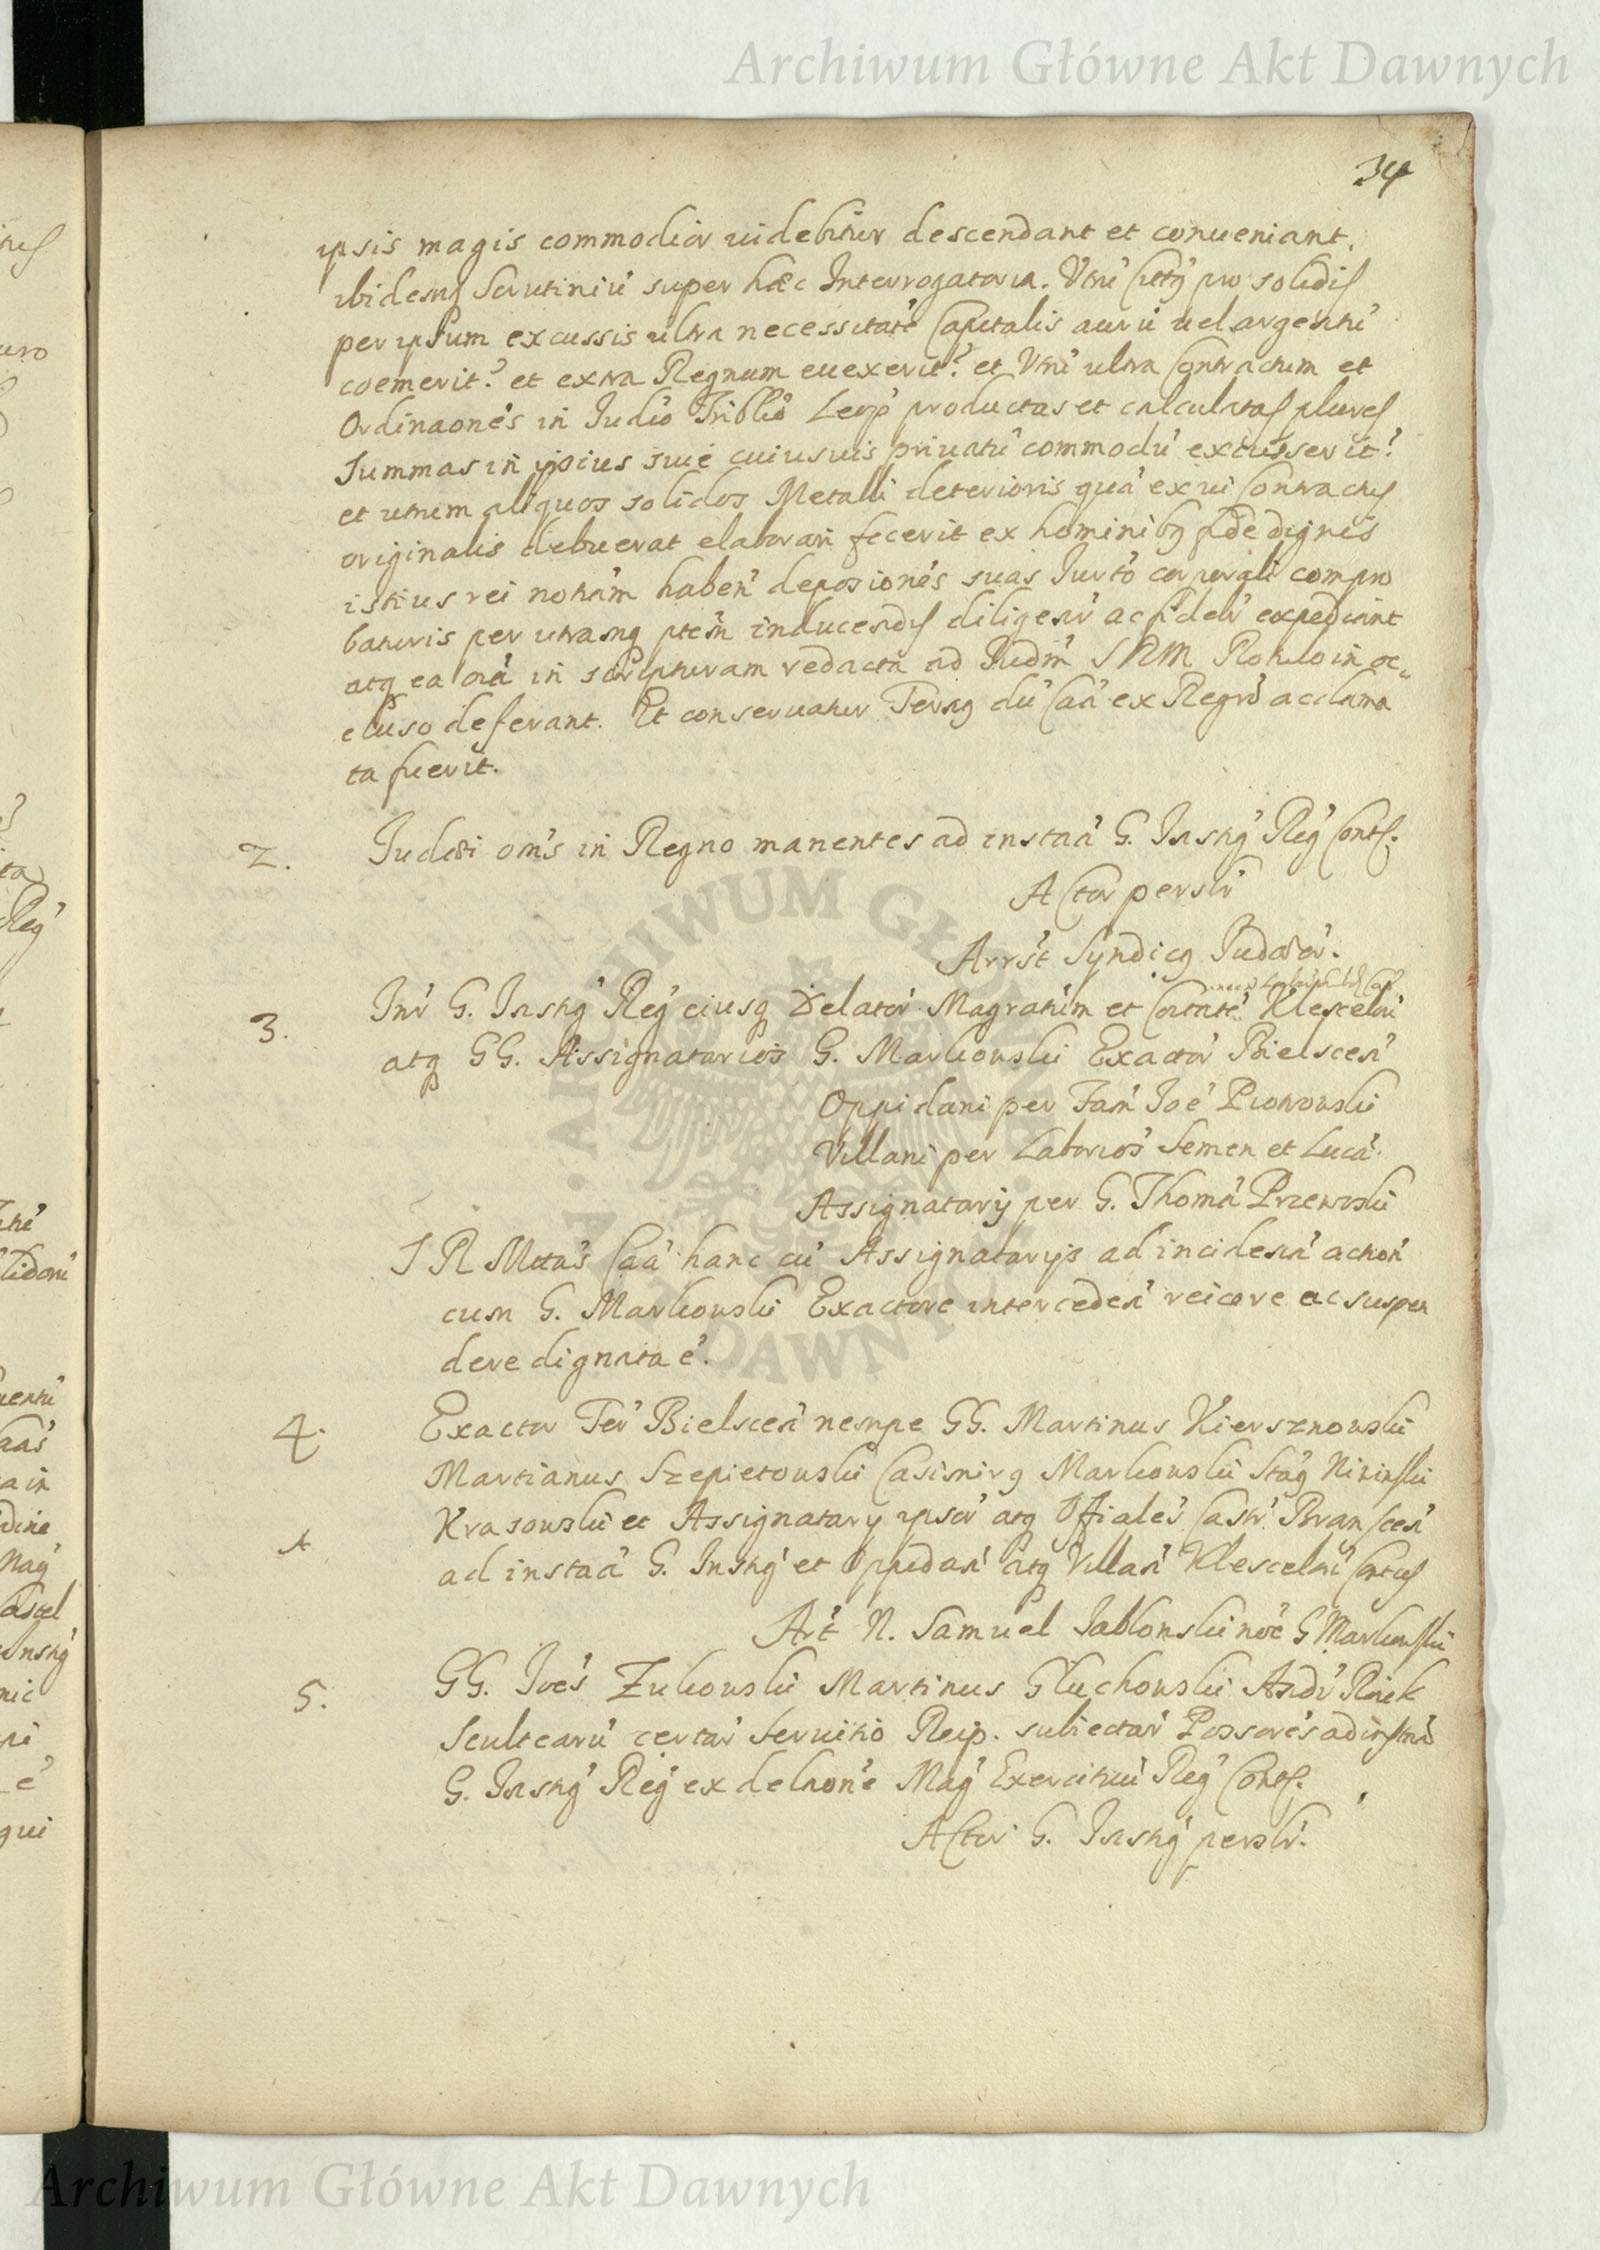 Archiwum Główne Akt Dawnych
34
ipsis magis commodior uidebitur descendant et conueniant.
ibidemq Scrutiniu super hæc Interrogatoria. Vtru pro solidis
per ipsum excussis ultra necessitate Capitalis auru uel argentu
coemerit? et extra Regnum euexerit? et Vtru ultra Contractum et
Ordinaones in Iudio productas et calculatas plures
Summas in ipsius siue cuiusuis priuatu commodu excusserit?
et utrum aliquos solidos Metalli deterioris qua ex ui Contractus
originalis debuerat elaborari fecerit ex hominibq fide dignis
istius rei notam haben deposiones suas Iurto corporali compro
baturis per utramq ptem inducendis diligenr ac fidelr expediant
atq ea oia in scripturam redacta ad Iudm S R M Rotulo in oc
cluso deferant. Et conseruatur Termq du Caa ex Regro acclama
ta fuerit.
2. Iudæi oms in Regno manentes ad instaa G. Instig Reg Conts.
Actor perslr
Arrst Syndicq Iudæor.
3. Inr G. Instig Reg eiusq Delator Magratum et Coitate Klescelen
atq GG. Assignatarios G. Markowski Exactor Bielscen
Oppidani per Fam Ioe Piotrowski
Villani per Laborios Semen et Luca
Assignatarij per G. Thoma Przewoski
S R Mttas Caa hanc cu Assignatarijs ad inciden action
cum G. Markowski Exactore interceden reicere ac suspen
dere dignata e.
4. Exactor Ter Bielscen nempe GG. Martinus Kiersznowski
Martianus Szepietowski Casimirq Markowski Stag
Krasowski et Assignatarij ipsor atq Offiales Castr Branscen
ad instaa G. Instig et Oppidan atq Villan Klescelen
Art N. Samuel Iablonski noe G Markowski
5. GG. Ioes Zukowski Martinus Gluchowski Andr
Scultearu certar Seruitio Reip. subiectar Possores ad insta
G. Instig Reg ex delaone Mag Exercituu Reg Conts.
Actor G. Instig perslr.
Archiwum Główne Akt Dawnych